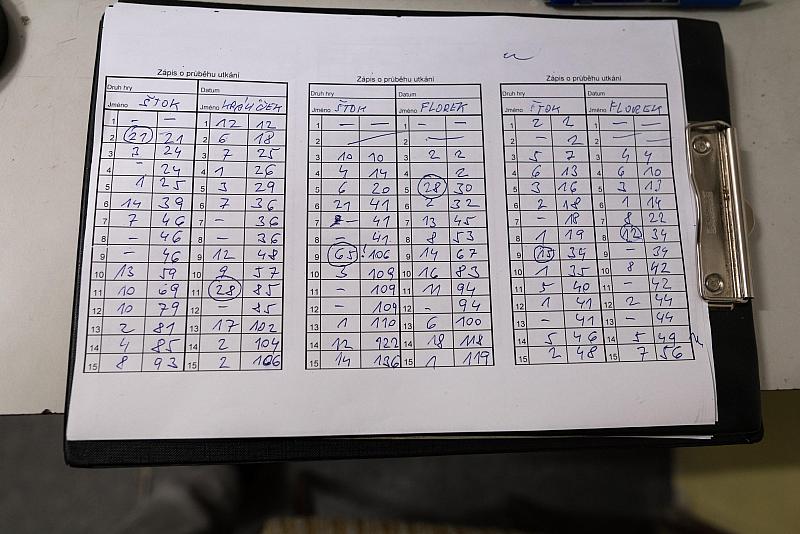 Zápis o průběhu utkání
Druh hry Datum
Jméno ŠTOK Jméno
1 – – 1 12 12
2 21 21 2 6 18
3 3 24 3 7 25
4 – 24 4 1 26
5 1 25 5 3 29
6 14 39 6 7 36
7 7 46 7 – 36
8 – 46 8 – 36
9 – 46 9 12 48
10 13 59 10 9 57
11 10 69 11 28 85
12 10 79 12 – 85
13 2 81 13 17 102
14 4 85 14 2 104
15 8 93 15 2 106
Zápis o průběhu utkání
Druh hry Datum
Jméno ŠTOK Jméno FLOREK
1 – – 1 – –
2 2 –
3 10 10 3 2 2
4 4 14 4 2
5 6 20 5 28 30
6 21 41 6 2 32
7 – 41 7 13 45
8 41 8 8 53
9 65 106 9 14 67
10 3 109 10 16 83
11 – 109 11 11 94
12 – 109 12 – 94
13 1 110 13 6 100
14 12 122 14 18 118
15 14 136 15 1 119
Zápis o průběhu utkání
Druh hry Datum
Jméno ŠTOK Jméno FLOREK
1 2 2 1 – –
2 – 2 2 – –
3 5 7 3 4 4
4 6 13 4 6 10
5 3 16 5 3 13
6 2 18 6 1 14
7 – 18 7 8 22
8 1 19 8 12 34
9 15 34 9 – 34
10 1 35 10 8 42
11 5 40 11 – 42
12 1 41 12 2 44
13 – 41 13 – 44
14 5 46 14 5 49
15 2 48 15 7 56